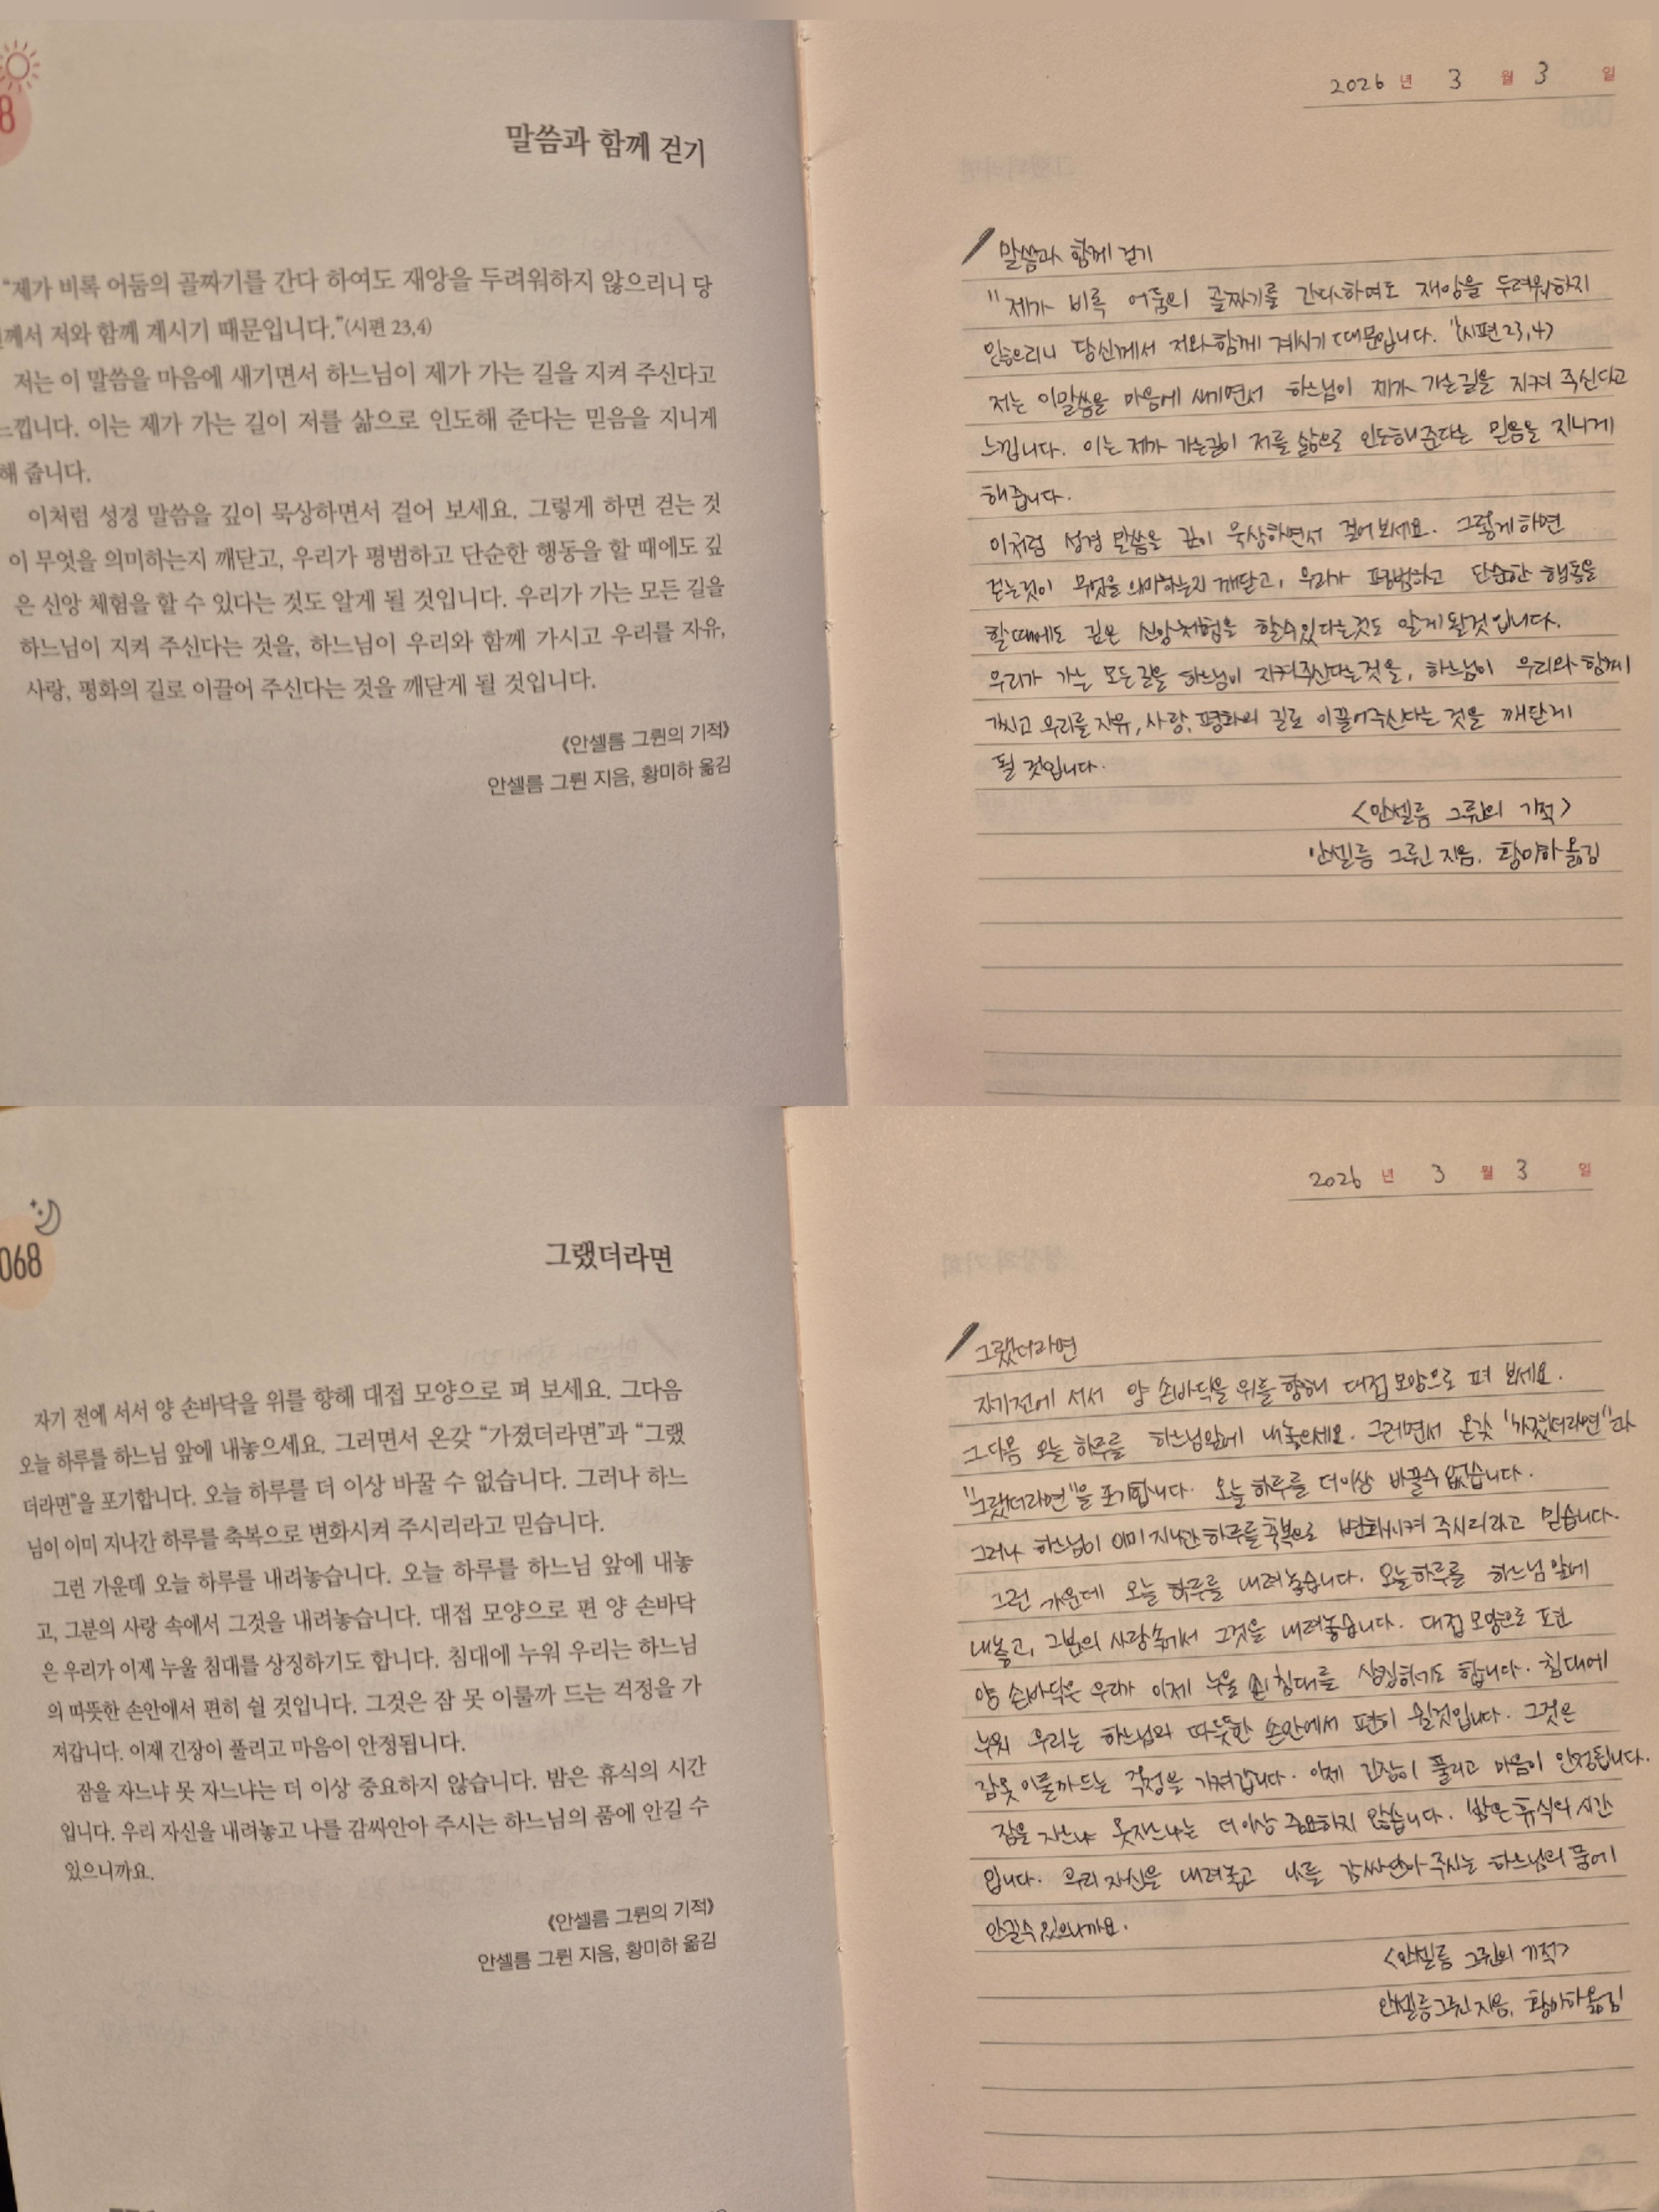 8
말씀과 함께 걷기
“제가 비록 어둠의 골짜기를 간다 하여도 재앙을 두려워하지 않으리니 당
께서 저와 함께 계시기 때문입니다.”(시편 23,4)
저는 이 말씀을 마음에 새기면서 하느님이 제가 가는 길을 지켜 주신다고
느낍니다. 이는 제가 가는 길이 저를 삶으로 인도해 준다는 믿음을 지니게
해 줍니다.
이처럼 성경 말씀을 깊이 묵상하면서 걸어 보세요. 그렇게 하면 걷는 것
이 무엇을 의미하는지 깨닫고, 우리가 평범하고 단순한 행동을 할 때에도 깊
은 신앙 체험을 할 수 있다는 것도 알게 될 것입니다. 우리가 가는 모든 길을
하느님이 지켜 주신다는 것을, 하느님이 우리와 함께 가시고 우리를 자유,
사랑, 평화의 길로 이끌어 주신다는 것을 깨닫게 될 것입니다.
《안셀름 그륀의 기적》
안셀름 그륀 지음, 황미하 옮김
2026 년 3 월 3 일
말씀과 함께 걷기
"제가 비록 어둠의 골짜기를 간다하여도 재앙을 두려워하지
않으리니 당신께서 저와 함께 계시기 때문입니다."(시편 23,4)
저는 이말씀을 마음에 새기면서 하느님이 제가 가는길을 지켜 주신다고
느낍니다. 이는 제가 가는길이 저를 삶으로 인도해준다는 믿음을 지니게
해줍니다.
이처럼 성경 말씀을 깊이 묵상하면서 걸어보세요. 그렇게하면
걷는것이 무엇을 의미하는지 깨닫고, 우리가 평범하고 단순한 행동을
할때에도 깊은 신앙체험을 할수있다는것도 알게 될것입니다.
우리가 가는 모든길을 하느님이 지켜주신다는것을, 하느님이 우리와 함께
가시고 우리를 자유, 사랑, 평화의 길로 이끌어주신다는 것을 깨닫게
될 것입니다.
<안셀름 그륀의 기적>
안셀름 그륀 지음, 황미하 옮김
068
그랬더라면
자기 전에 서서 양 손바닥을 위를 향해 대접 모양으로 펴 보세요. 그다음
오늘 하루를 하느님 앞에 내놓으세요. 그러면서 온갖 “가졌더라면”과 “그랬
더라면”을 포기합니다. 오늘 하루를 더 이상 바꿀 수 없습니다. 그러나 하느
님이 이미 지나간 하루를 축복으로 변화시켜 주시리라고 믿습니다.
그런 가운데 오늘 하루를 내려놓습니다. 오늘 하루를 하느님 앞에 내놓
고, 그분의 사랑 속에서 그것을 내려놓습니다. 대접 모양으로 편 양 손바닥
은 우리가 이제 누울 침대를 상징하기도 합니다. 침대에 누워 우리는 하느님
의 따뜻한 손안에서 편히 쉴 것입니다. 그것은 잠 못 이룰까 드는 걱정을 가
져갑니다. 이제 긴장이 풀리고 마음이 안정됩니다.
잠을 자느냐 못 자느냐는 더 이상 중요하지 않습니다. 밤은 휴식의 시간
입니다. 우리 자신을 내려놓고 나를 감싸안아 주시는 하느님의 품에 안길 수
있으니까요.
《안셀름 그륀의 기적》
안셀름 그륀 지음, 황미하 옮김
2026 년 3 월 3 일
그랬더라면
자기전에 서서 양 손바닥을 위를 향해 대접모양으로 펴 보세요.
그다음 오늘 하루를 하느님앞에 내놓으세요. 그러면서 온갖 "가졌더라면"과
"그랬더라면"을 포기합니다. 오늘 하루를 더이상 바꿀수 없습니다.
그러나 하느님이 이미 지나간 하루를 축복으로 변화시켜 주시리라고 믿습니다.
그런 가운데 오늘 하루를 내려놓습니다. 오늘하루를 하느님 앞에
내놓고, 그분의 사랑속에서 그것을 내려놓습니다. 대접모양으로 편
양 손바닥은 우리가 이제 누울 침대를 상징하기도 합니다. 침대에
누워 우리는 하느님의 따뜻한 손안에서 편히 쉴것입니다. 그것은
잠못 이룰까드는 걱정을 가져갑니다. 이제 긴장이 풀리고 마음이 안정됩니다.
잠을 자느냐 못자느냐는 더이상 중요하지 않습니다. 밤은 휴식의 시간
입니다. 우리 자신을 내려놓고 나를 감싸안아 주시는 하느님의 품에
안길수 있으니까요.
<안셀름 그륀의 기적>
안셀름그륀 지음, 황미하 옮김